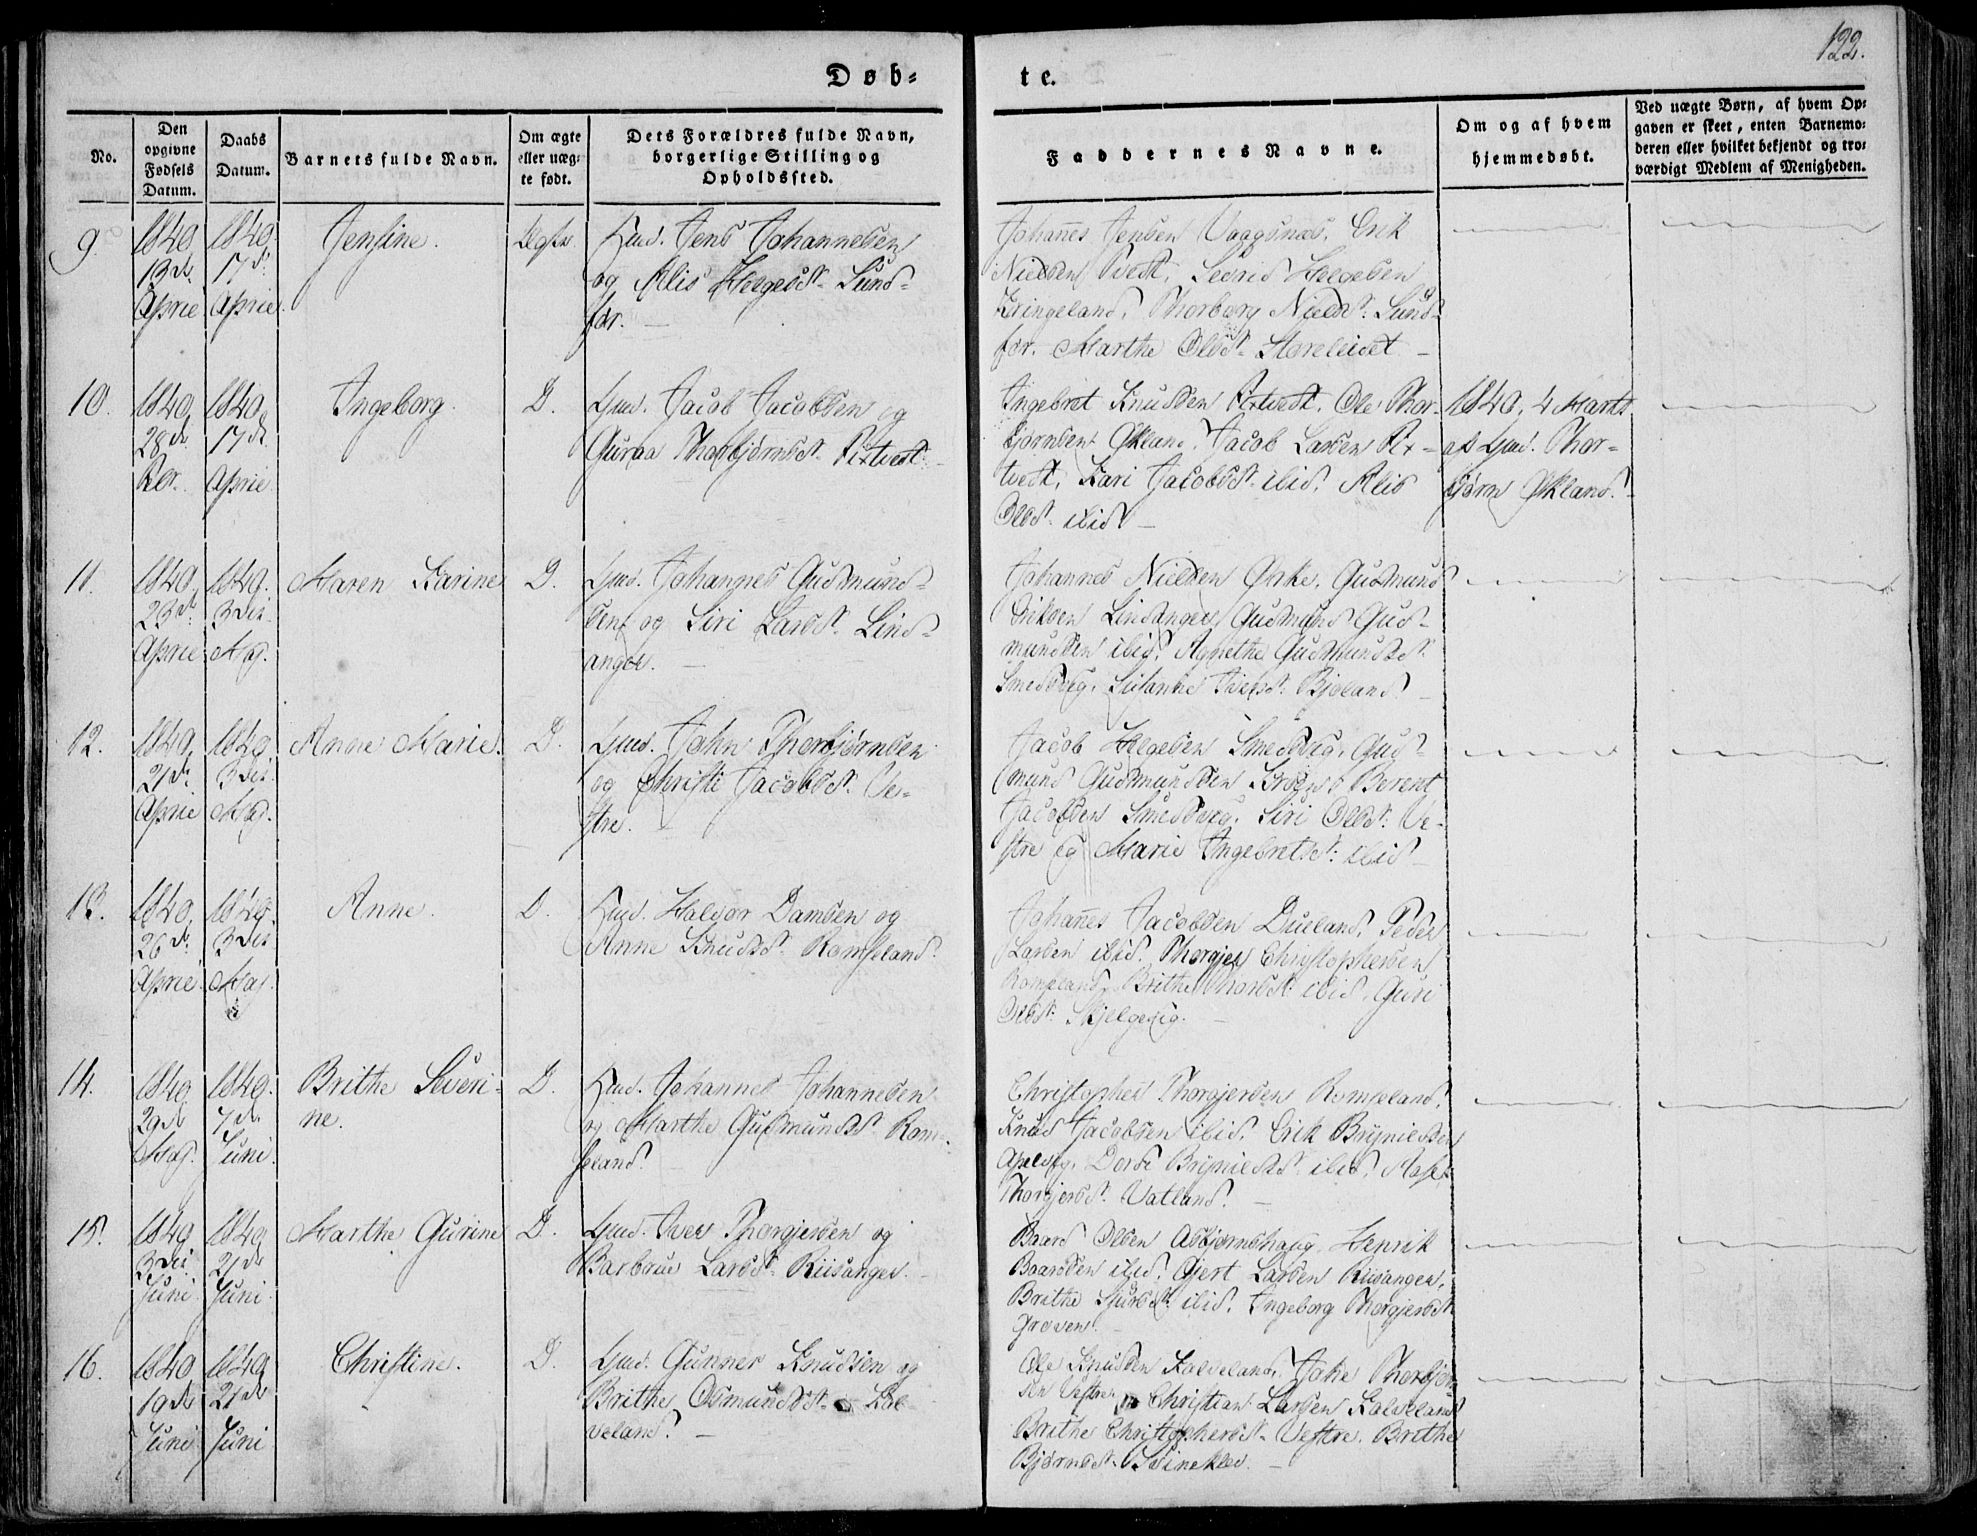 122.
Døb=
te.
No.
Den opgivne Fødsels Datum.
Daabs Datum.
Barnets fulde Navn.
Om ægte eller uæg= te født.
Dets Forældres fulde Navn, borgerlige Stilling og Opholdssted.
Faddernes Navne.
Om og af hvem hjemmedøbt.
Ved uægte Børn, af hvem Op=
gaven er skeet, enten Barnemo=
deren eller hvilket bekjendt og tro=
værdigt Medlem af Menigheden.
9. 1840 13de April
1840 17de April
Jensine.
Ægte
Huusm. Jens Johannesen
og Alis Helgesdt. Sund=
før.
Johanes Jensen Vaagsnæs, Erik
Nielsen Tvedt, Sevrid Helgesen
Kringeland, Thorborg Nielsdt. Sund=
før. Marthe Olsdt. Storeleidet
10. 1840 28de
1840 17de April
Ingeborg.
D.
Gmd. Jacob Jacobsen og
Guroa Thorbjørnsdt. Fixtvedt
Ingebret Knudsen Fixtvedt, Ole Thor=
bjørnsen Økland, Jacob Larsen Fix=
tvedt, Kari Jacobsdt. ibid. Alis
Olsdt. ibid
1840, 4 Marts
af Gmd. Thor=
bjørn Økland.
11. 1840 23de April
1840. 3die Maj.
Maren Karine
D.
Gmd. Johannes Gudmund=
sen og Siri Larsdt. Lind=
anger.
Johannes Nielsen Ørke, Gudmund
Eriksen Lindanger, Gudmund Gud=
mundsen ibid. Agnethe Gudmundsdt.
Smedsvig, Susanne Iversdt. Bjeland
12. 1840 21de April
1840 3die Maj.
Anne Marie.
D.
Gmd. John Thorbjørnsen
og Christi Jacobsdt. Ve=
stre.
Jacob Helgesen Smedsvig, Gud=
mund Gudmundsen Berent
Jacobsen Smedsvig, Siri Olsdt. Ve=
stre og Marie Ingebretsdt. ibid
13. 1840 26de April
1840 3die Maj.
Anne.
D.
Huusm. Halvor Damsen og
Anne Knudsdt. Romseland.
Johanes Jacobsen Dueland, Peder
Larsen ibid. Thorgjer Christophersen
Romseland, Brithe Thorsdt. ibid, Guri
Olsdt. Skjelgevig.
14. 1840 29de Maj.
1840. 7de Juni.
Brithe Severi=
ne.
D.
Huusm. Johannes Johannesen
og Marthe Gudmundsdt. Rom=
seland.
Christopher Thorgjersen Romseland,
Knud Jacobsen ibid, Erik Brynildsen
Apelvig, Dorde Brynildsdt. ibid,
Thorgjersdt. Vatland.
15. 1840 3die Juni
1840 21de Juni
Marthe Gurine
D.
Gmd. Iver Thorgjersen og
Barbrue Larsdt. Riisanger.
Baard Olsen Asbjørnshaug, Henrik
Baardsen ibid. Gjert Larsen Riisanger,
Brithe Sjursdt. ibid, Ingeborg Thorgjersdt.
Graven.
16. 1840 10de Juni
1840 21de Juni
Christine.
D.
Gmd. Gunner Knudsen og
Brithe Osmundsdt. Kal=
veland.
Ole Knudsen Kalveland, John Thorbjørn=
sen Vestre, Christian Larsen Kalveland
Brithe Christophersdt. Vestre. Brithe
Bjørnsdt.